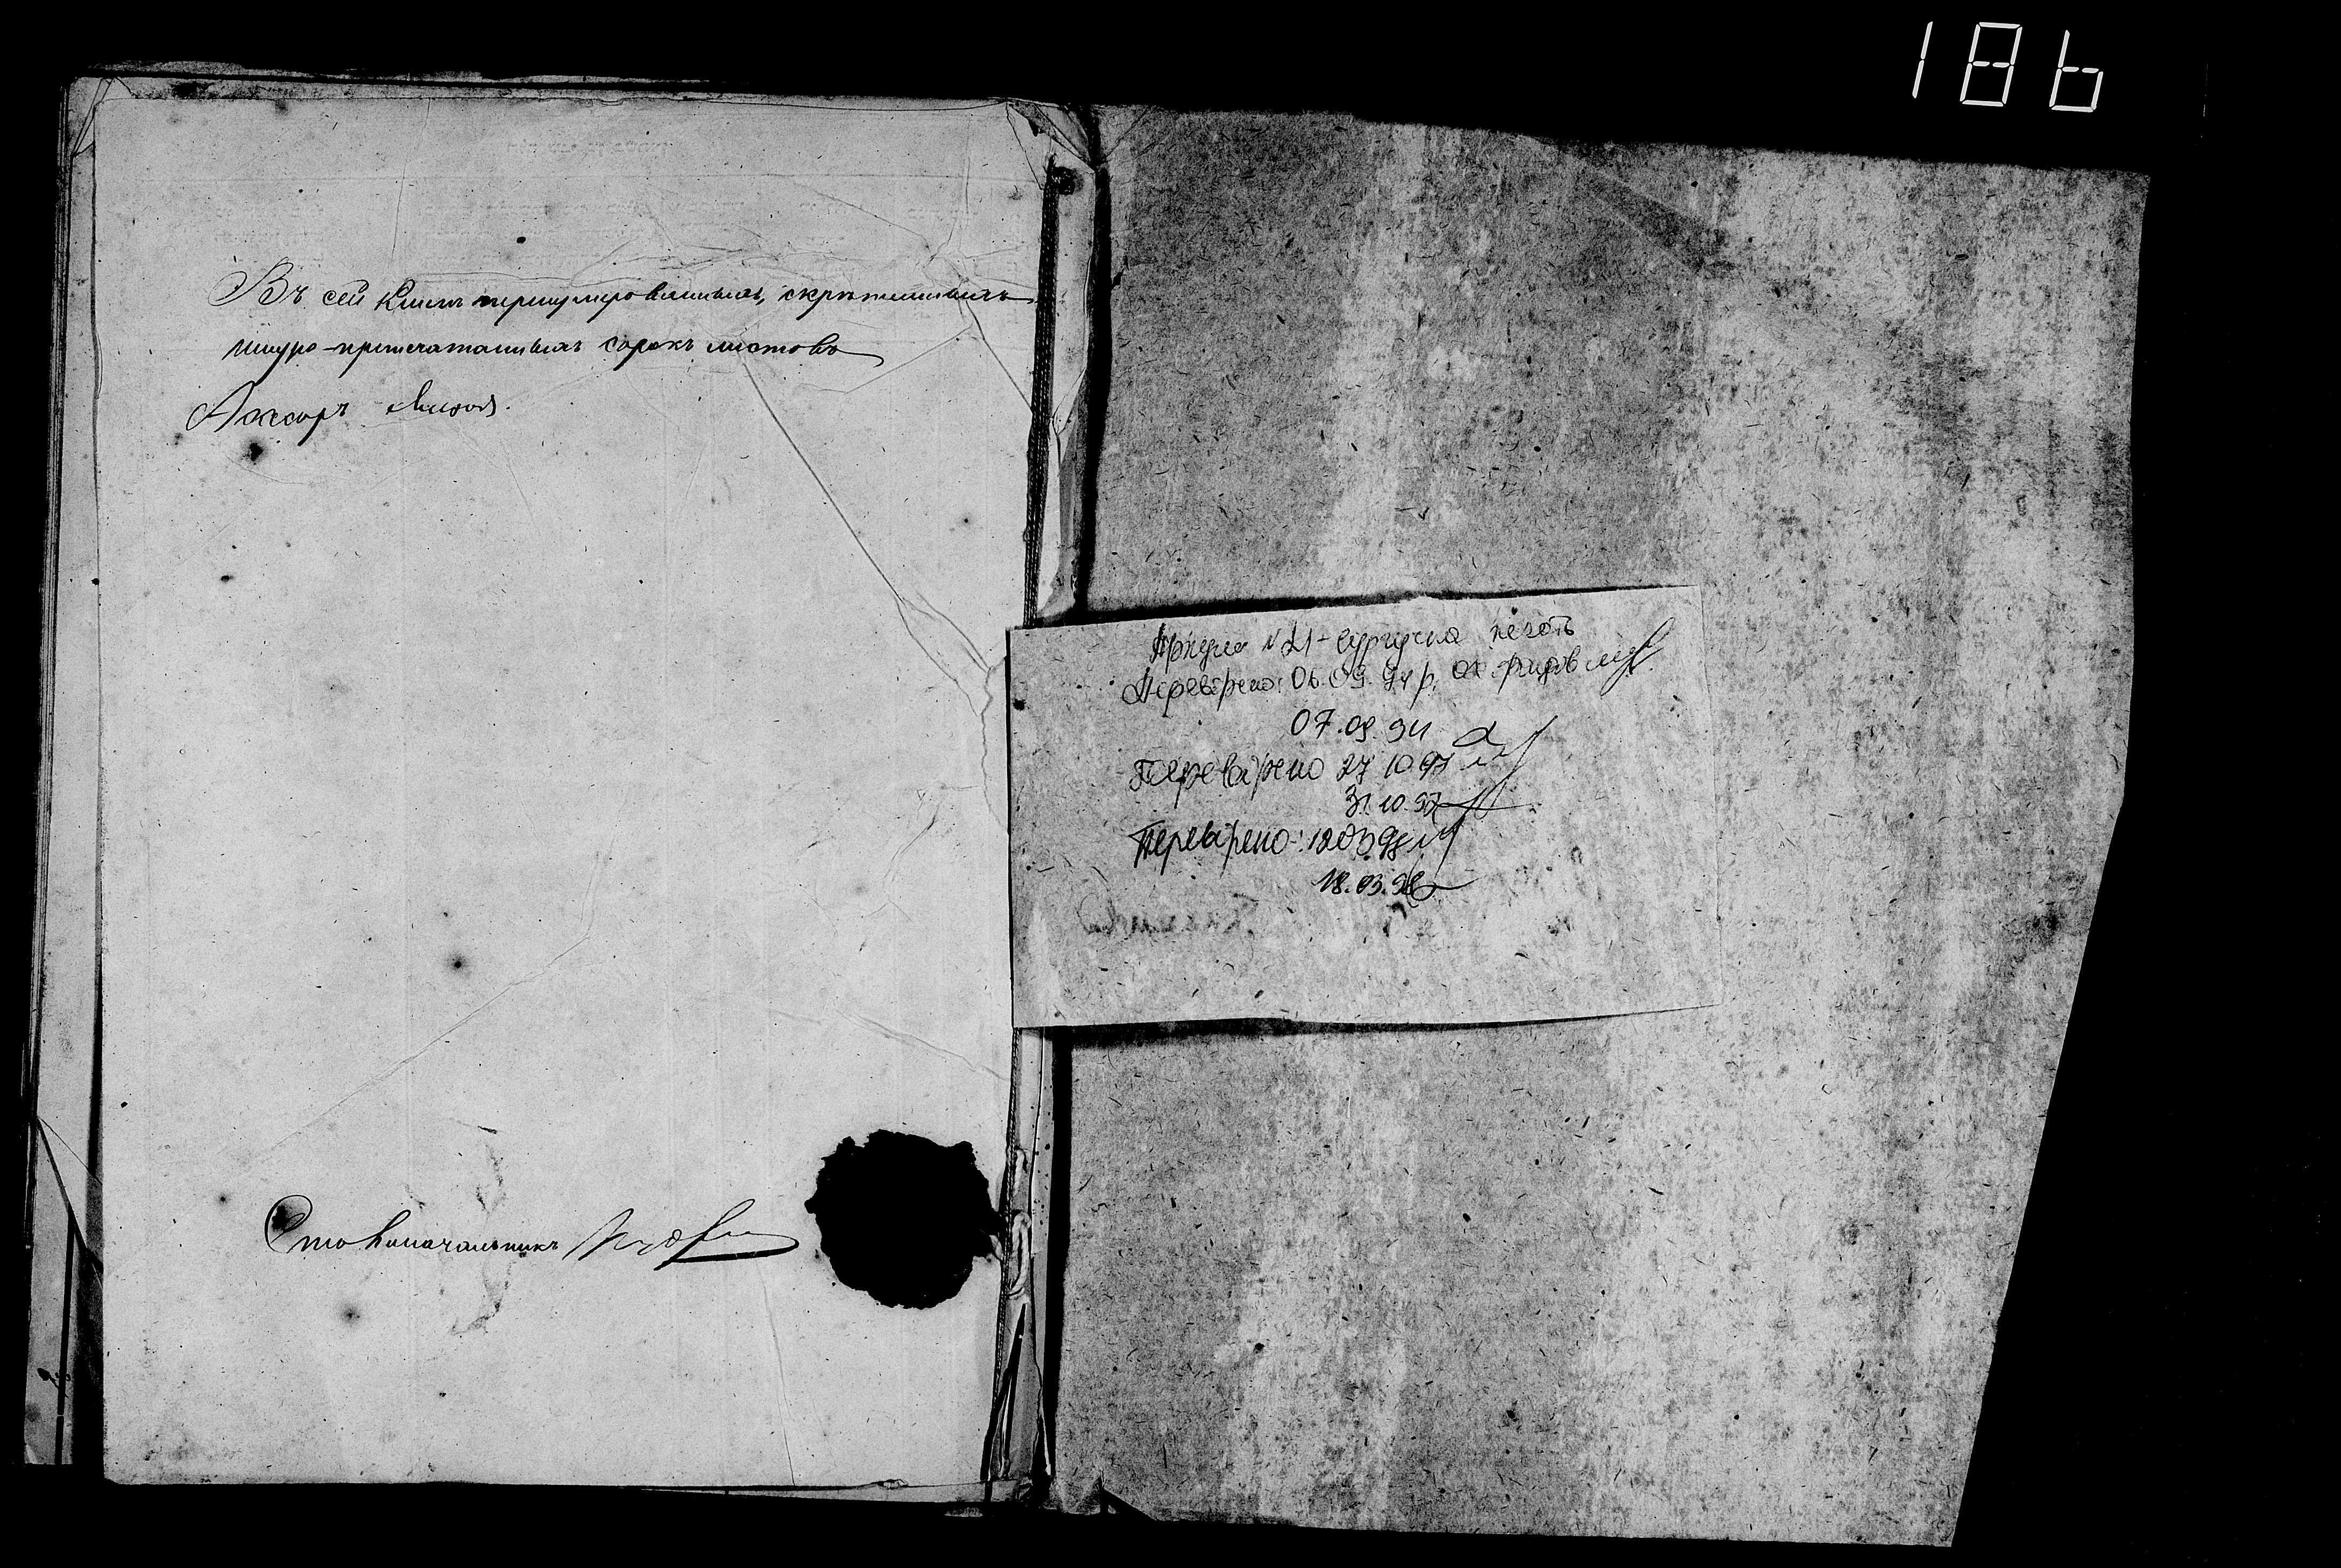 Въ сей книгѣ перенумерованныхъ, скрѣпленныхъ
шнуро-припечатанныхъ сорокъ листовъ
Столоначальникъ
Аркуш №21 - сургучна печать
Перевірено: 06.09.94 р.
07.09.94
Перевірено 27.10.97
31.10.97
Перевірено: 12.03.98
18.03.98
186